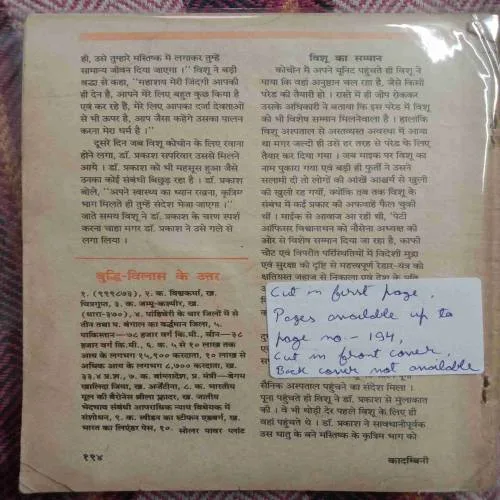 ही, उसे तुम्हारे मस्तिष्क में लगाकर तुम्हें
सामान्य जीवन दिया जाएगा ।’’ विशू ने बड़ी
श्रद्धा से कहा, ‘‘महाशय मेरी जिंदगी आपकी
ही देन है, आपने मेरे लिए बहुत कुछ किया है
एवं कर रहे हैं, मेरे लिए आपका दर्जा देवताओं
से भी ऊपर है, आप जैसा कहेंगे उसका पालन
करना मेरा धर्म है ।’’
दूसरे दिन जब विशू कोचीन के लिए रवाना
होने लगा, डॉ. प्रकाश सपरिवार उससे मिलने
आये । डॉ. प्रकाश को भी महसूस हुआ जैसे
उनका कोई संबंधी बिछुड़ रहा है । डॉ. प्रकाश
बोले, ‘‘अपने स्वास्थ्य का ध्यान रखना, कृत्रिम
भाग मिलते ही तुम्हें संदेश भेजा जाएगा ।’’
जाते समय विशू ने डॉ. प्रकाश के चरण स्पर्श
करना चाहा मगर डॉ. प्रकाश ने उसे गले से
लगा लिया ।
बुद्धि-विलास के उत्तर
१. (९९१८७३), २. क. विश्वकर्मा, ख.
चित्रगुप्त, ३. क. जम्मू-कश्मीर, ख.
(धारा-३७०), ४. पांडिचेरी के चार जिलों में से
तीन तथा प. बंगाल का बर्द्धमान जिला, ५.
पाकिस्तान—७८ हजार वर्ग कि.मी., चीन—३८
हजार वर्ग कि.मी., ६. क. ५ से १० लाख तक
आय के लगभग १५,९०० करदाता, १० लाख से
अधिक आय के लगभग ८,७०० करदाता, ख.
३३.४ प्र.श., ७. क. बांगलादेश, प्र. मंत्री—बेगम
खालिदा जिया, ख. अर्जेंटीना, ८. क. भारतीय
मूल की बैरोनेस श्रीला फ्लादर, ख. जातीय
भेदभाव संबंधी आपराधिक न्याय विधेयक में
संशोधन, ९. क. स्वीडन का स्टीफन एडबर्ग, ख.
भारत का लिएंडर पेस, १०. सोलर पावर प्लांट
११४
विशू का सम्मान
कोचीन में अपने यूनिट पहुंचते ही विशू ने
पाया कि वहां अनुष्ठान चल रहा है, जैसे किसी
परेड की तैयारी हो । रास्ते में ही जीप रोककर
उसके अधिकारी ने बताया कि इस परेड में विशू
को भी विशेष सम्मान मिलनेवाला है । हालांकि
विशू अस्पताल से अस्तव्यस्त अवस्था में आया
था मगर जल्दी ही उसे हर तरह से परेड के लिए
तैयार कर दिया गया । जब माइक पर विशू का
नाम पुकारा गया एवं बड़ी ही फुर्ती से उसने
सलामी दी तो लोगों की आंखें आश्चर्य से खुली
की खुली रह गयीं, क्योंकि तब तक विशू के
संबंध में कई प्रकार की अफवाहें फैला चुकी
थीं । माईक से आवाज आ रही थी, ‘पेटी
ऑफिसर विश्वनाथन को नौसेना अध्यक्ष की
ओर से विशेष सम्मान दिया जा रहा है, काफी
चोट एवं विपरीत परिस्थितियों में विदेशी मुद्रा
एवं सुरक्षा की दृष्टि से महत्त्वपूर्ण रेडार-यंत्र को
क्षतिग्रस्त जहाज से निकाला एवं देश के प्रति
Cut in first page,
Pages available up to
page no:- 194,
Cut in front cover,
Back cover not available
सैनिक अस्पताल पहुंचने का संदेश मिला ।
पूना पहुंचते ही विशू ने डॉ. प्रकाश से मुलाकात
की । वे भी थोड़ी देर पहले विशू के लिए ही
वहां पहुंचे थे । डॉ. प्रकाश ने सावधानीपूर्वक
उस धातु के बने मस्तिष्क के कृत्रिम भाग को
कादम्बिनी